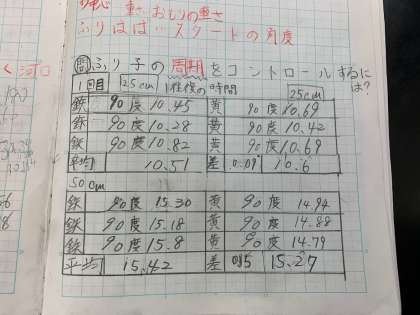 重さ おもりの重さ
ふりはば…スタートの角度
く 河口
問 ふり子の周期をコントロールするには?
1回目 25cm 1往復の時間 25cm
鉄 90度 10.45 黄 90度 10.69
鉄 90度 10.28 黄 90度 10.42
鉄 90度 10.82 黄 90度 10.69
平均 10.51 差 0.09 10.6
50cm
鉄 90度 15.30 黄 90度 14.94
鉄 90度 15.18 黄 90度 14.88
鉄 90度 15.8 黄 90度 14.79
平均 15.42 差 15.27